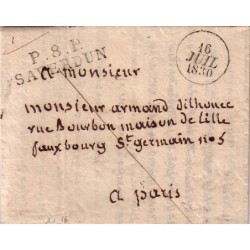 P.8.P.
SAVERDUN
16
JUIL
1830
A monsieur
monsieur armand dilhouee
rue Bourbon maison de lille
fauxbourg St germain n°5
a paris